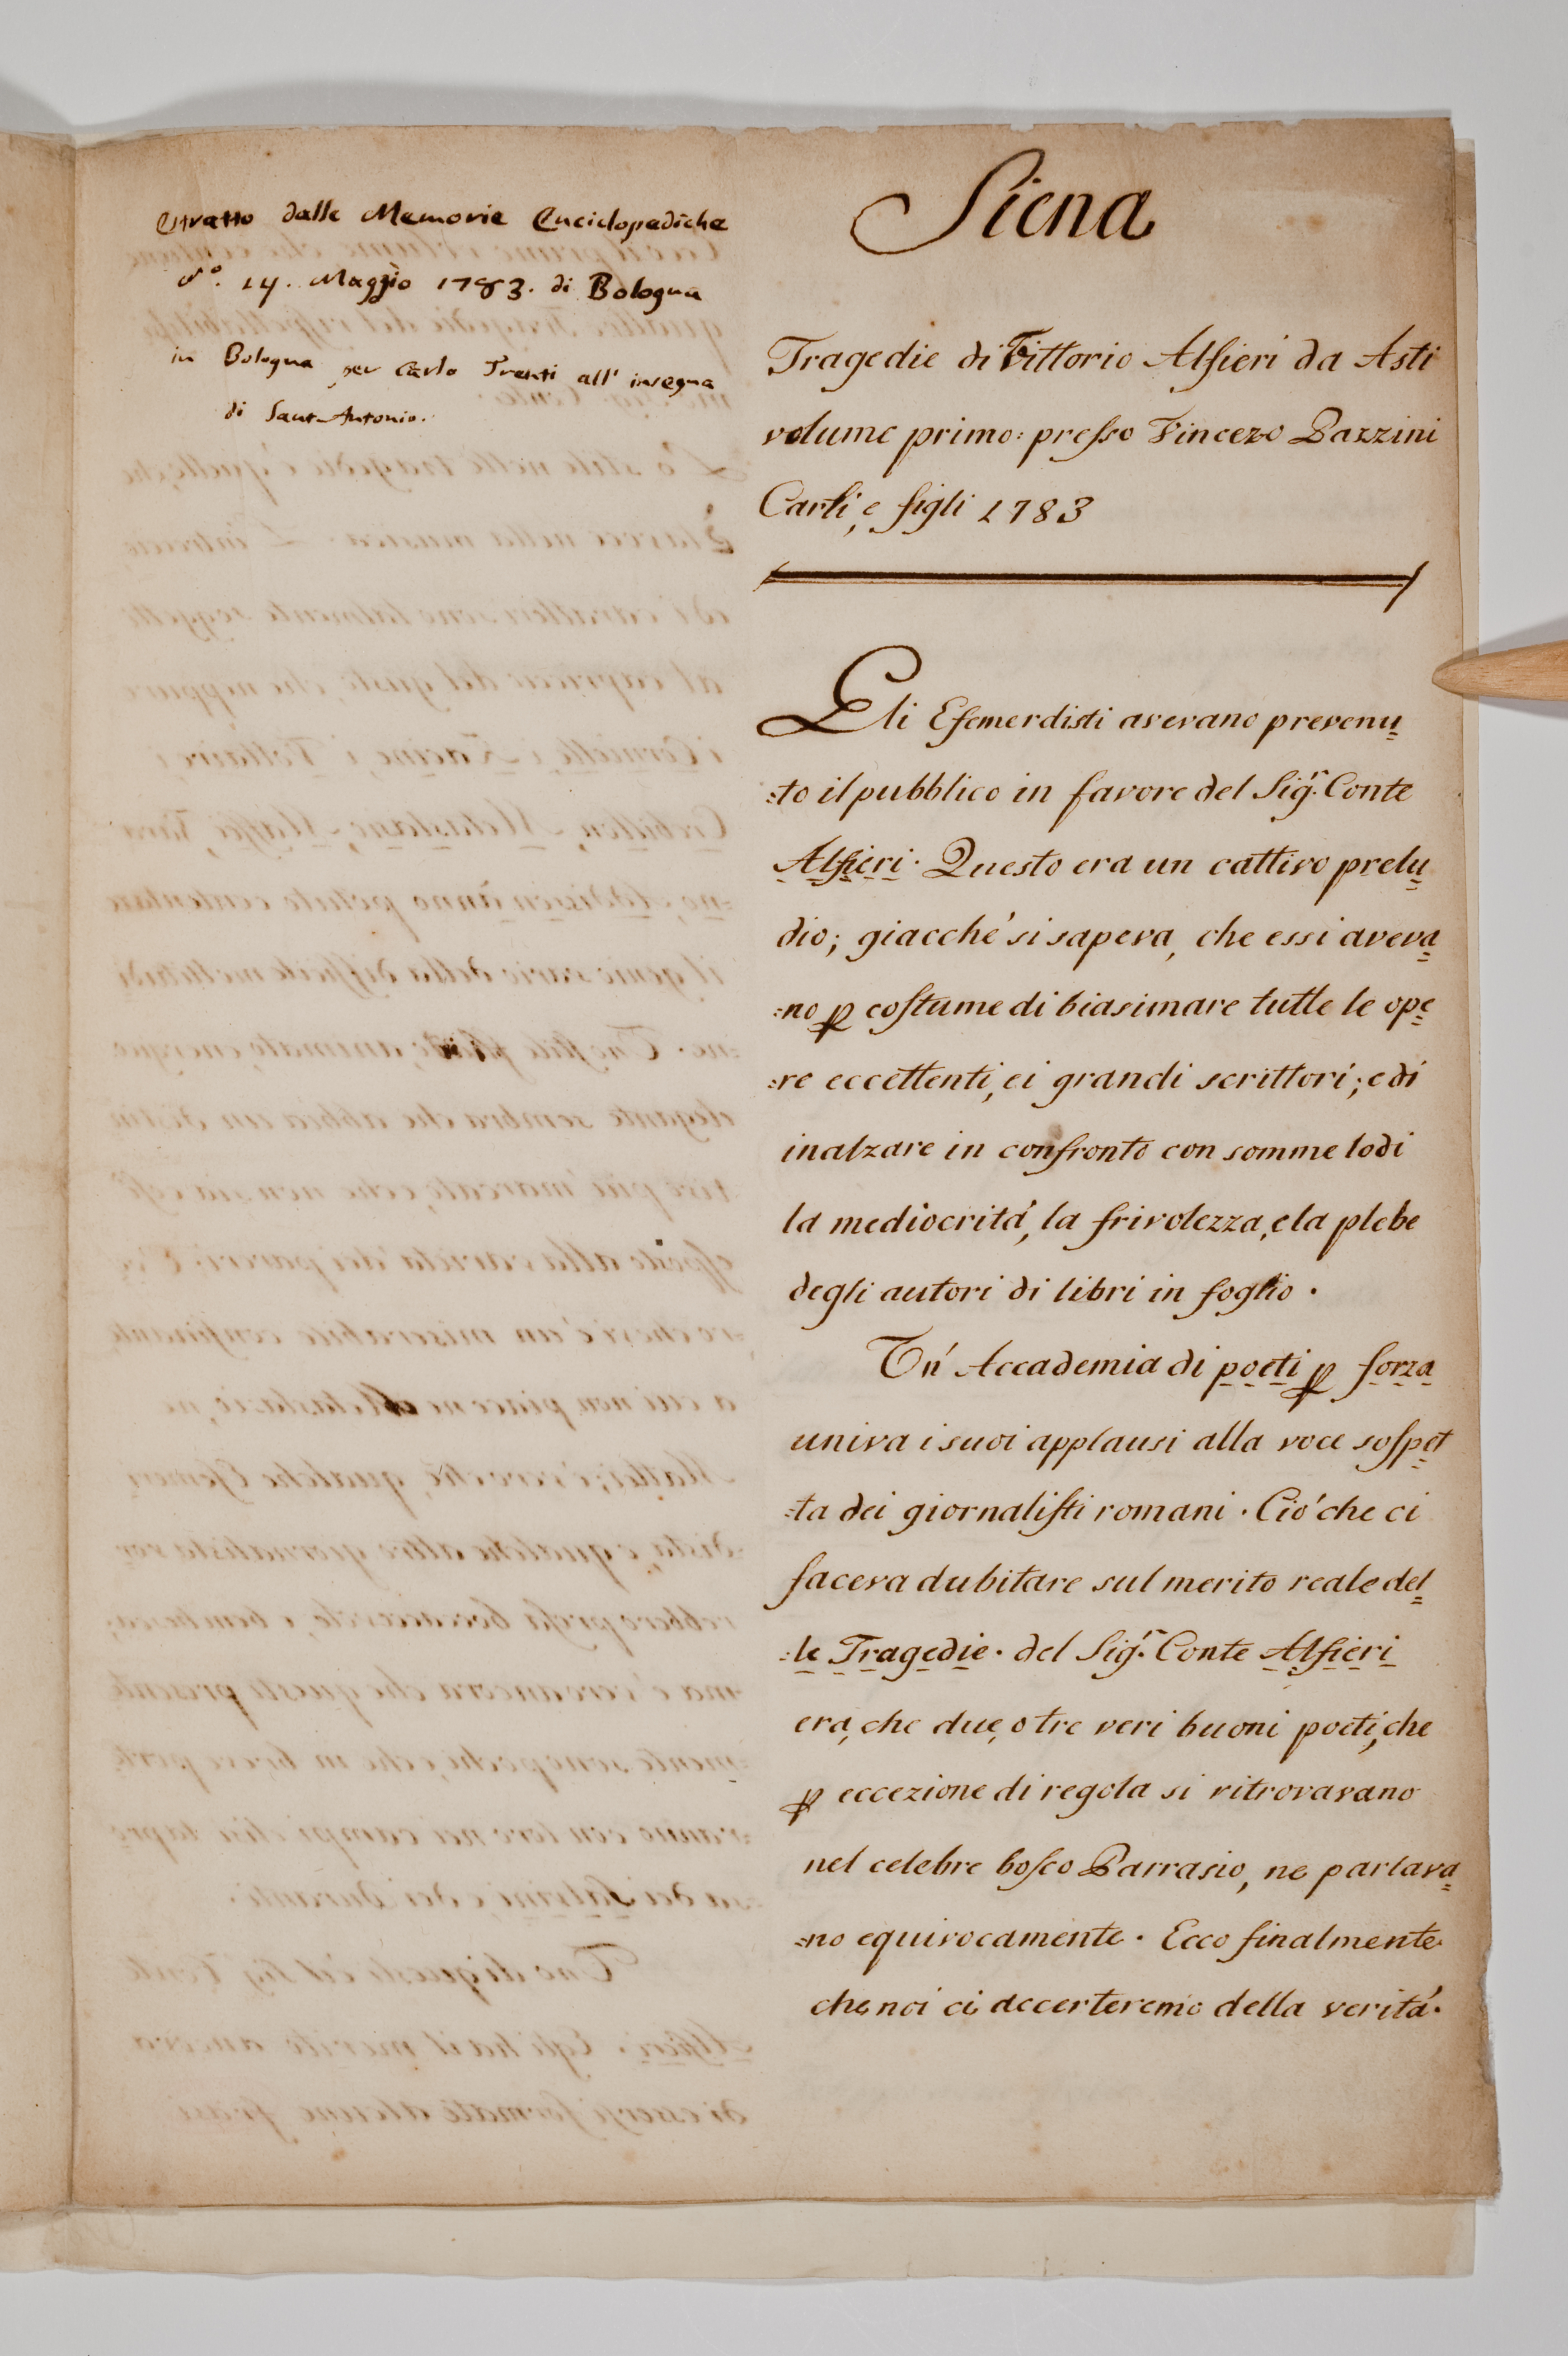 Estratto dalle Memorie Enciclopediche
N.º 14. Maggio 1783. di Bologna
in Bologna per Carlo Trenti all' insegna
di Sant Antonio.
Siena
Tragedie di Vittorio Alfieri da Asti
volume primo: presso Vincezo Pazzini
Carli, e figli 1783
Gli Efemerdisti avevano prevenu
:to il pubblico in favore del Sigr. Conte
Alfieri. Questo era un cattivo prelu
dio; giacché si sapeva, che essi aveva
:no p costume di biasimare tutte le ope
:re eccellenti, ei grandi scrittori; e di
inalzare in confronto con somme lodi
la mediocritá, la frivolezza, e la plebe
degli autori di libri in foglio.
Un' Accademia di poeti p forza
univa i suoi applausi alla voce sospet
:ta dei giornalisti romani. Ció che ci
faceva dubitare sul merito reale del
:le Tragedie. del Sigr. Conte Alfieri
era, che due, o tre veri buoni poeti, che
p eccezione di regola si ritrovavano
nel celebre bosco Parrasio, ne parlava
:no equivocamente. Ecco finalmente
che noi ci accerteremo della veritá.